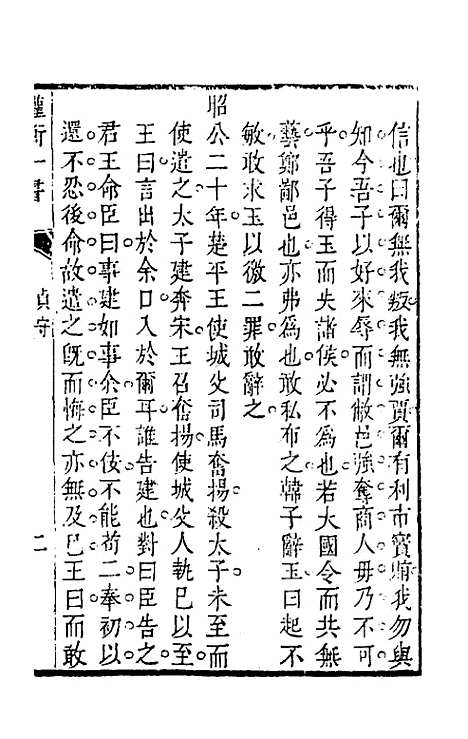 信也曰爾無我叛我無強賈爾有利市寶賄我勿與
知今吾子以好來辱而謂敝邑強奪商人毋乃不可
乎吾子得玉而失諸侯必不為也若大國令而共無
藝鄭鄙邑也亦弗為也敢私布之韓子辭玉曰起不
敏敢求玉以徼二罪敢辭之
昭公二十年楚平王使城父司馬奮揚殺太子未至而
使遣之太子建奔宋王召奮揚使城父人執已以至
王曰言出於余口入於爾耳誰告建也對曰臣告之
君王命臣曰事建如事余臣不佞不能茍二奉初以
還不忍後命故遣之既而悔之亦無及已王曰而敢
權衡一書
貞守
二